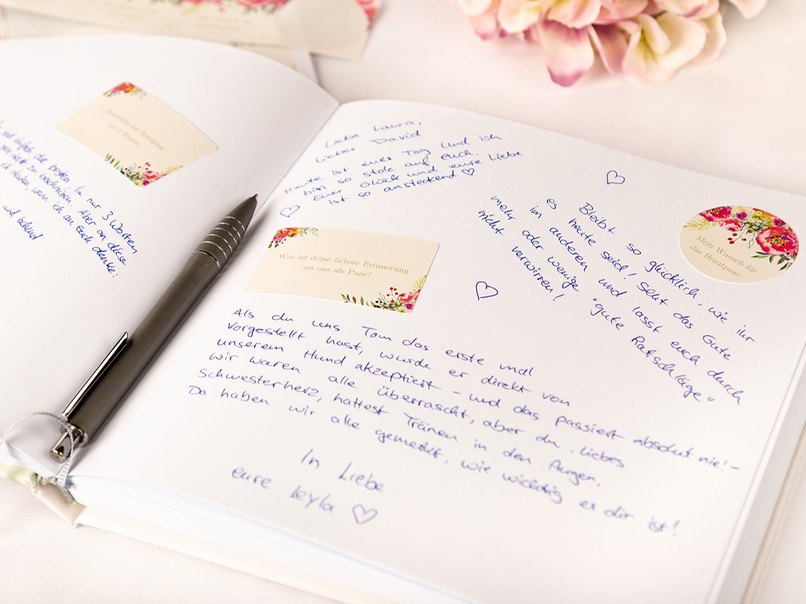 Beschreibe das Brautpaar
mit 3 Worten.
in nur 3 Worten
Aber an diese
ich an Euch denke:
und liebend
Liebe Laura,
lieber David
Heute ist euer Tag. Und ich
bin so stolz auf euch.
Euer Glück und eure Liebe
ist so ansteckend ♡
Was ist deine liebste Erinnerung
an uns als Paar?
Mein Wunsch für
das Brautpaar:
Bleibt so glücklich, wie ihr
es heute seid, seht das Gute
im anderen und lasst euch durch
mehr oder wenige "gute Ratschläge"
nicht verwirren!
Als du uns Tom das erste mal
vorgestellt hast, wurde er direkt von
unserem Hund akzeptiert - und das passiert absolut nie! -
wir waren alle überrascht, aber du, liebes
Schwesterherz, hattest Tränen in den Augen.
Da haben wir alle gemerkt, wie wichtig er dir ist!
In Liebe
eure Leyla ♡